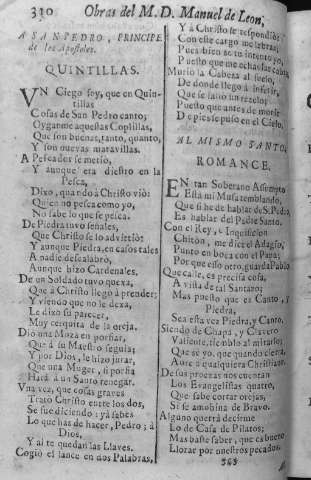 310 Obras del M. D. Manuel de Leon,
A SAN PEDRO, PRINCIPE
de los Apostoles.
QUINTILLAS.
UN Ciego soy, que en Quin-
tillas
Cosas de San Pedro canto;
Oyganme aquestas Coplillas,
Que son buenas, tanto, quanto,
Y son nuevas maravillas.
A Pescador se metio,
Y aunque era diestro en la
Pesca,
Dixo, quando à Christo viò:
Quien no pesca como yo,
No sabe lo que se pesca.
De Piedra tuvo señales,
Que Christo se lo advirtiò:
Y aunque Piedra, en casos tales
A nadie descalabro,
Aunque hizo Cardenales.
De un Soldado tuvo quexa,
Que à Christo llegò à prender:
Y viendo que no le dexa,
Le dixo su parecer,
Muy cerquita de la oreja.
Diò una Moza en porfiar,
Que à su Maestro seguia;
Y por Dios, le hizo jurar,
Que una Muger, si porfia
Harà à un Santo renegar.
Una vez, que cosas graves
Trato Christo entre los dos,
Se fue diciendo: yà sabes
Lo que has de hacer, Pedro; à
Dios,
Y ai te quedan las Llaves.
Cogiò el lance en dos Palabras,
Y à Christo le respondiò:
Con este cargo me
Pues bien se tu intento yo,
Puesto que me echas las
Murio la Cabeza al suelo,
De donde llego à inferir,
Que se salio un rezelo;
Puesto que antes de morir
De pies se puso en el Cielo.
AL MISMO SANTO,
ROMANCE.
EN tan Soberano Assumpto
Està mi Musa temblando,
Que si he de hablar de S. Pedro,
Es hablar del Padre Santo.
Con el Rey, è Inquisicion
Chiton, me dice el Adagio,
Punto en boca con el Papa;
Por que esso otro, guarda Pablo
Que calle, es precisa cosa,
A vista de tal Santazo;
Mas puesto que es Canto, y
Piedra,
Sea esta vez Piedra, y Canto.
Siendo de Chapa, y Clavero
Valiente, tiemblo al mirarlo;
Que sè yo, que quando cierra,
Abre à qualquiera Christiano.
De sus proezas nos cuentan
Los Evangelistas quatro,
Que sabe cortar orejas,
Si se amohina de Bravo.
Alguno querrà decirme
Lo de Casa de Pilatos;
Mas baste saber, que es bueno
Llorar por nuestros pecados.